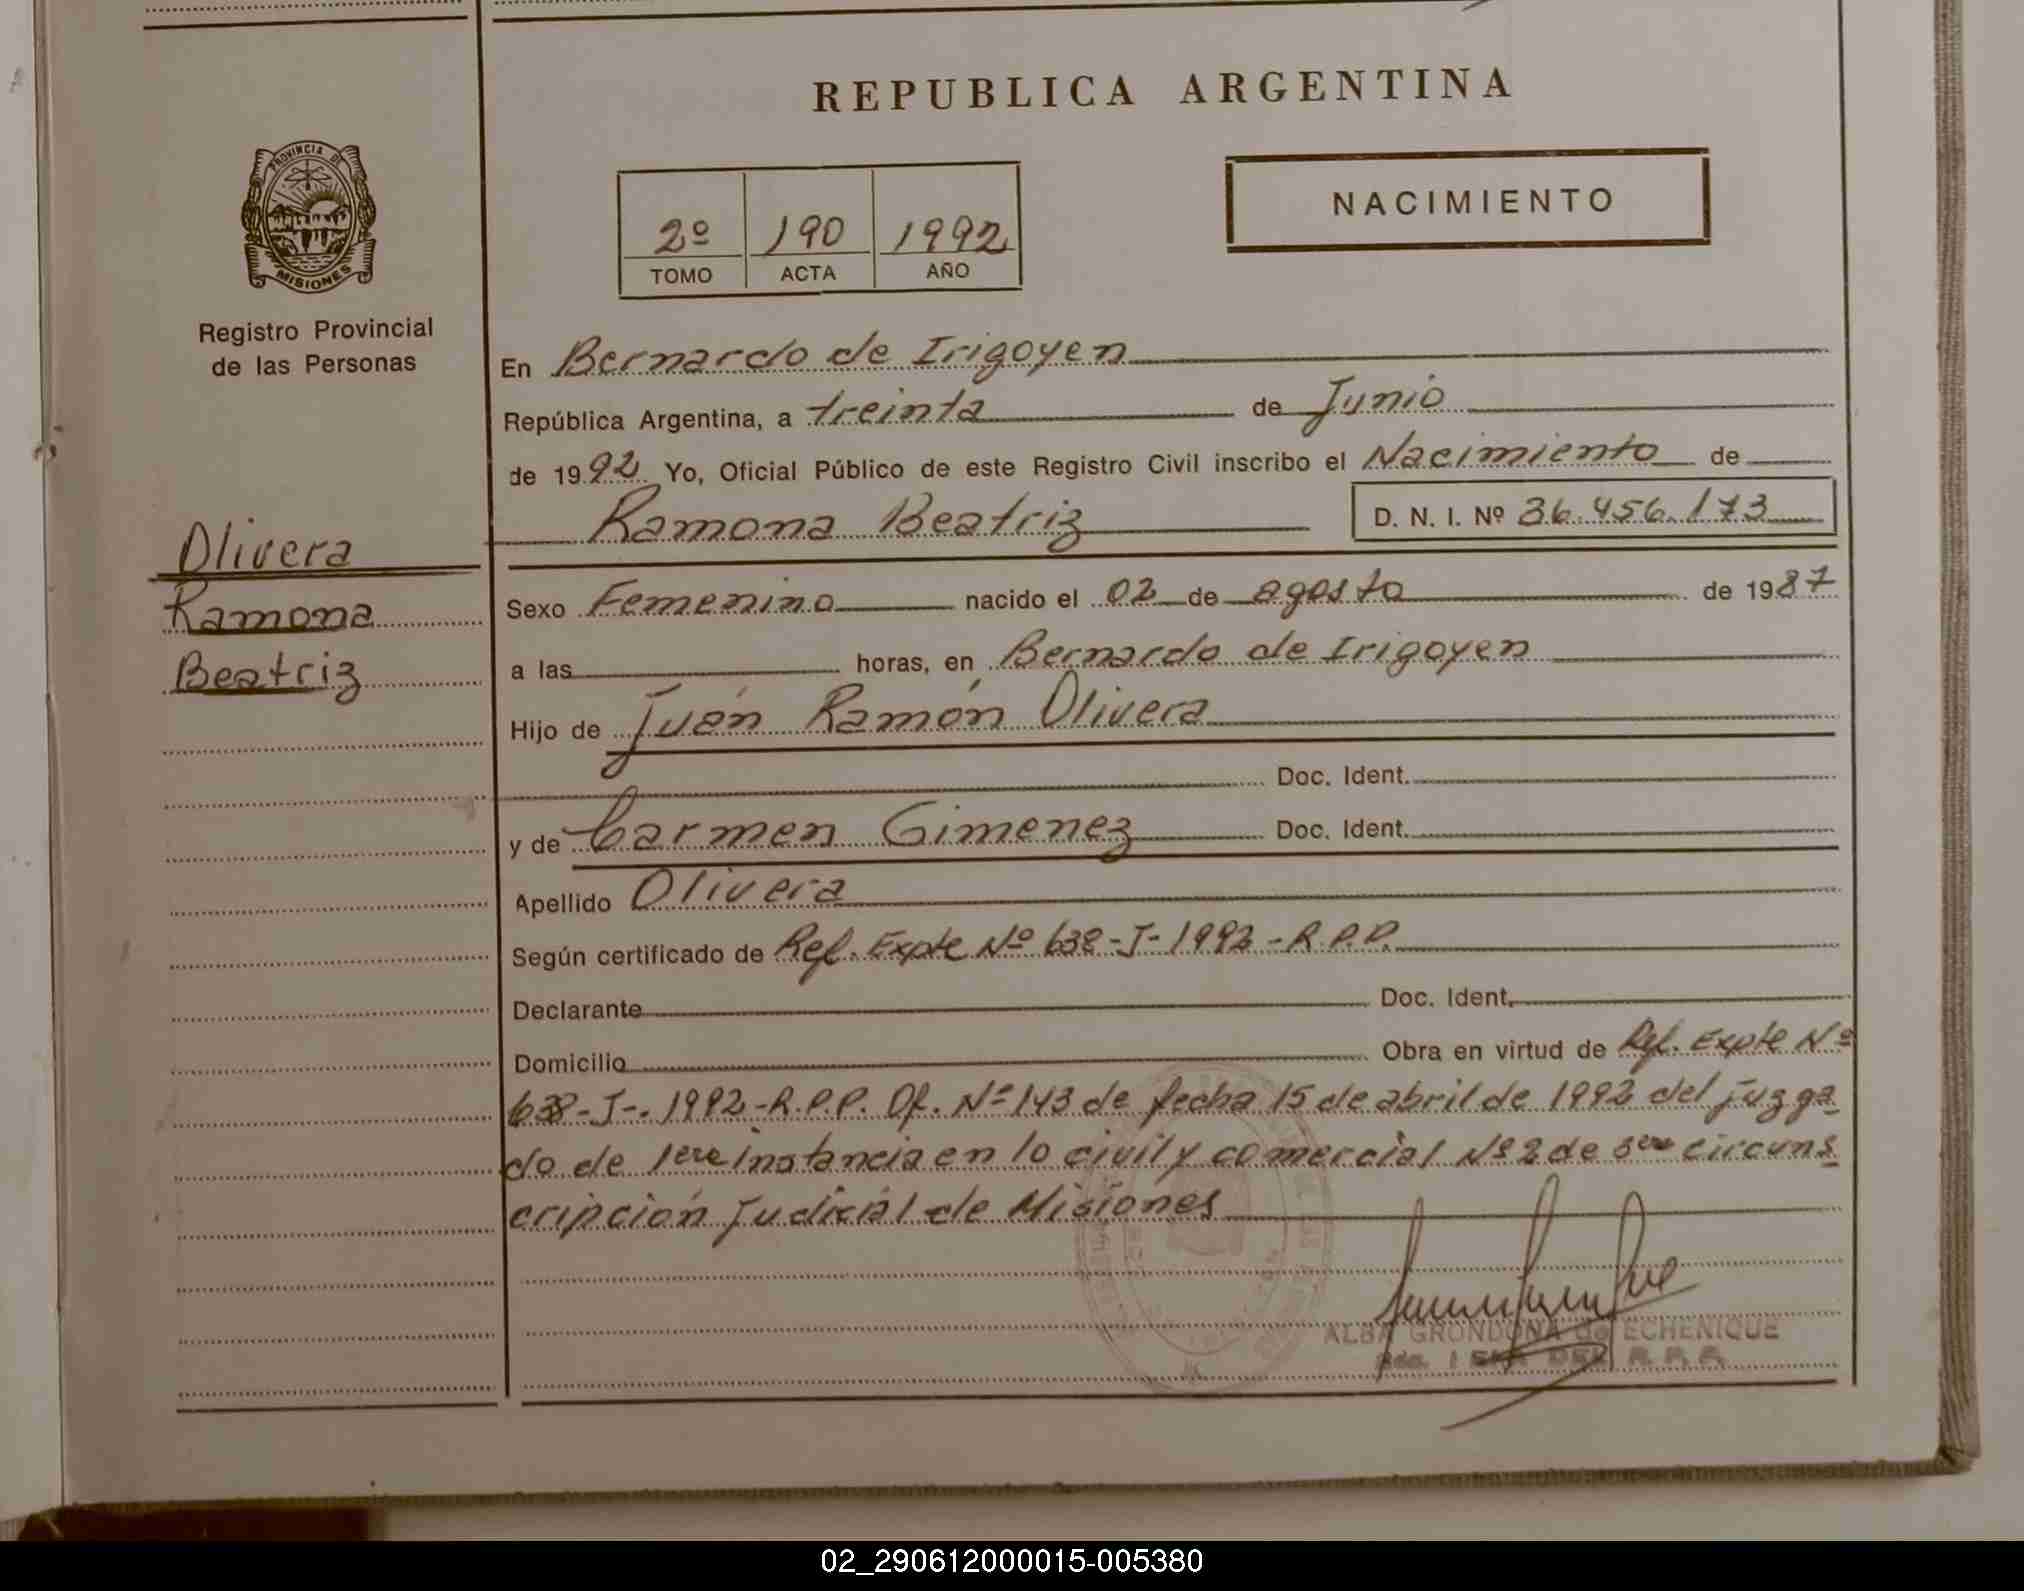 REPUBLICA ARGENTINA
PROVINCIA DE
MISIONES
Registro Provincial
de las Personas
2º 190 1992
TOMO ACTA AÑO
NACIMIENTO
En Bernardo de Irigoyen
República Argentina, a treinta de Junio
de 1992. Yo, Oficial Público de este Registro Civil inscribo el Nacimiento de
Ramona Beatriz D. N. I. Nº 36.456.173
Olivera
Ramona
Beatriz
Sexo Femenino nacido el 02 de agosto de 1987
a las horas, en Bernardo de Irigoyen
Hijo de Juán Ramón Olivera
Doc. Ident.
y de Carmen Gimenez Doc. Ident.
Apellido Olivera
Según certificado de Ref. Expte Nº 638-J-1992-R.P.P.
Declarante Doc. Ident.
Domicilio Obra en virtud de Ref. Expte Nº
638-J-. 1992-R.P.P. Of. Nº 143 de fecha 15 de abril de 1992 del juzga
do de 1era instancia en lo civil y comercial Nº 2 de 3era circuns
cripción Judicial de Misiones
ALBA GRONDONA de ECHENIQUE
DEL R. P. P.
02_290612000015-005380